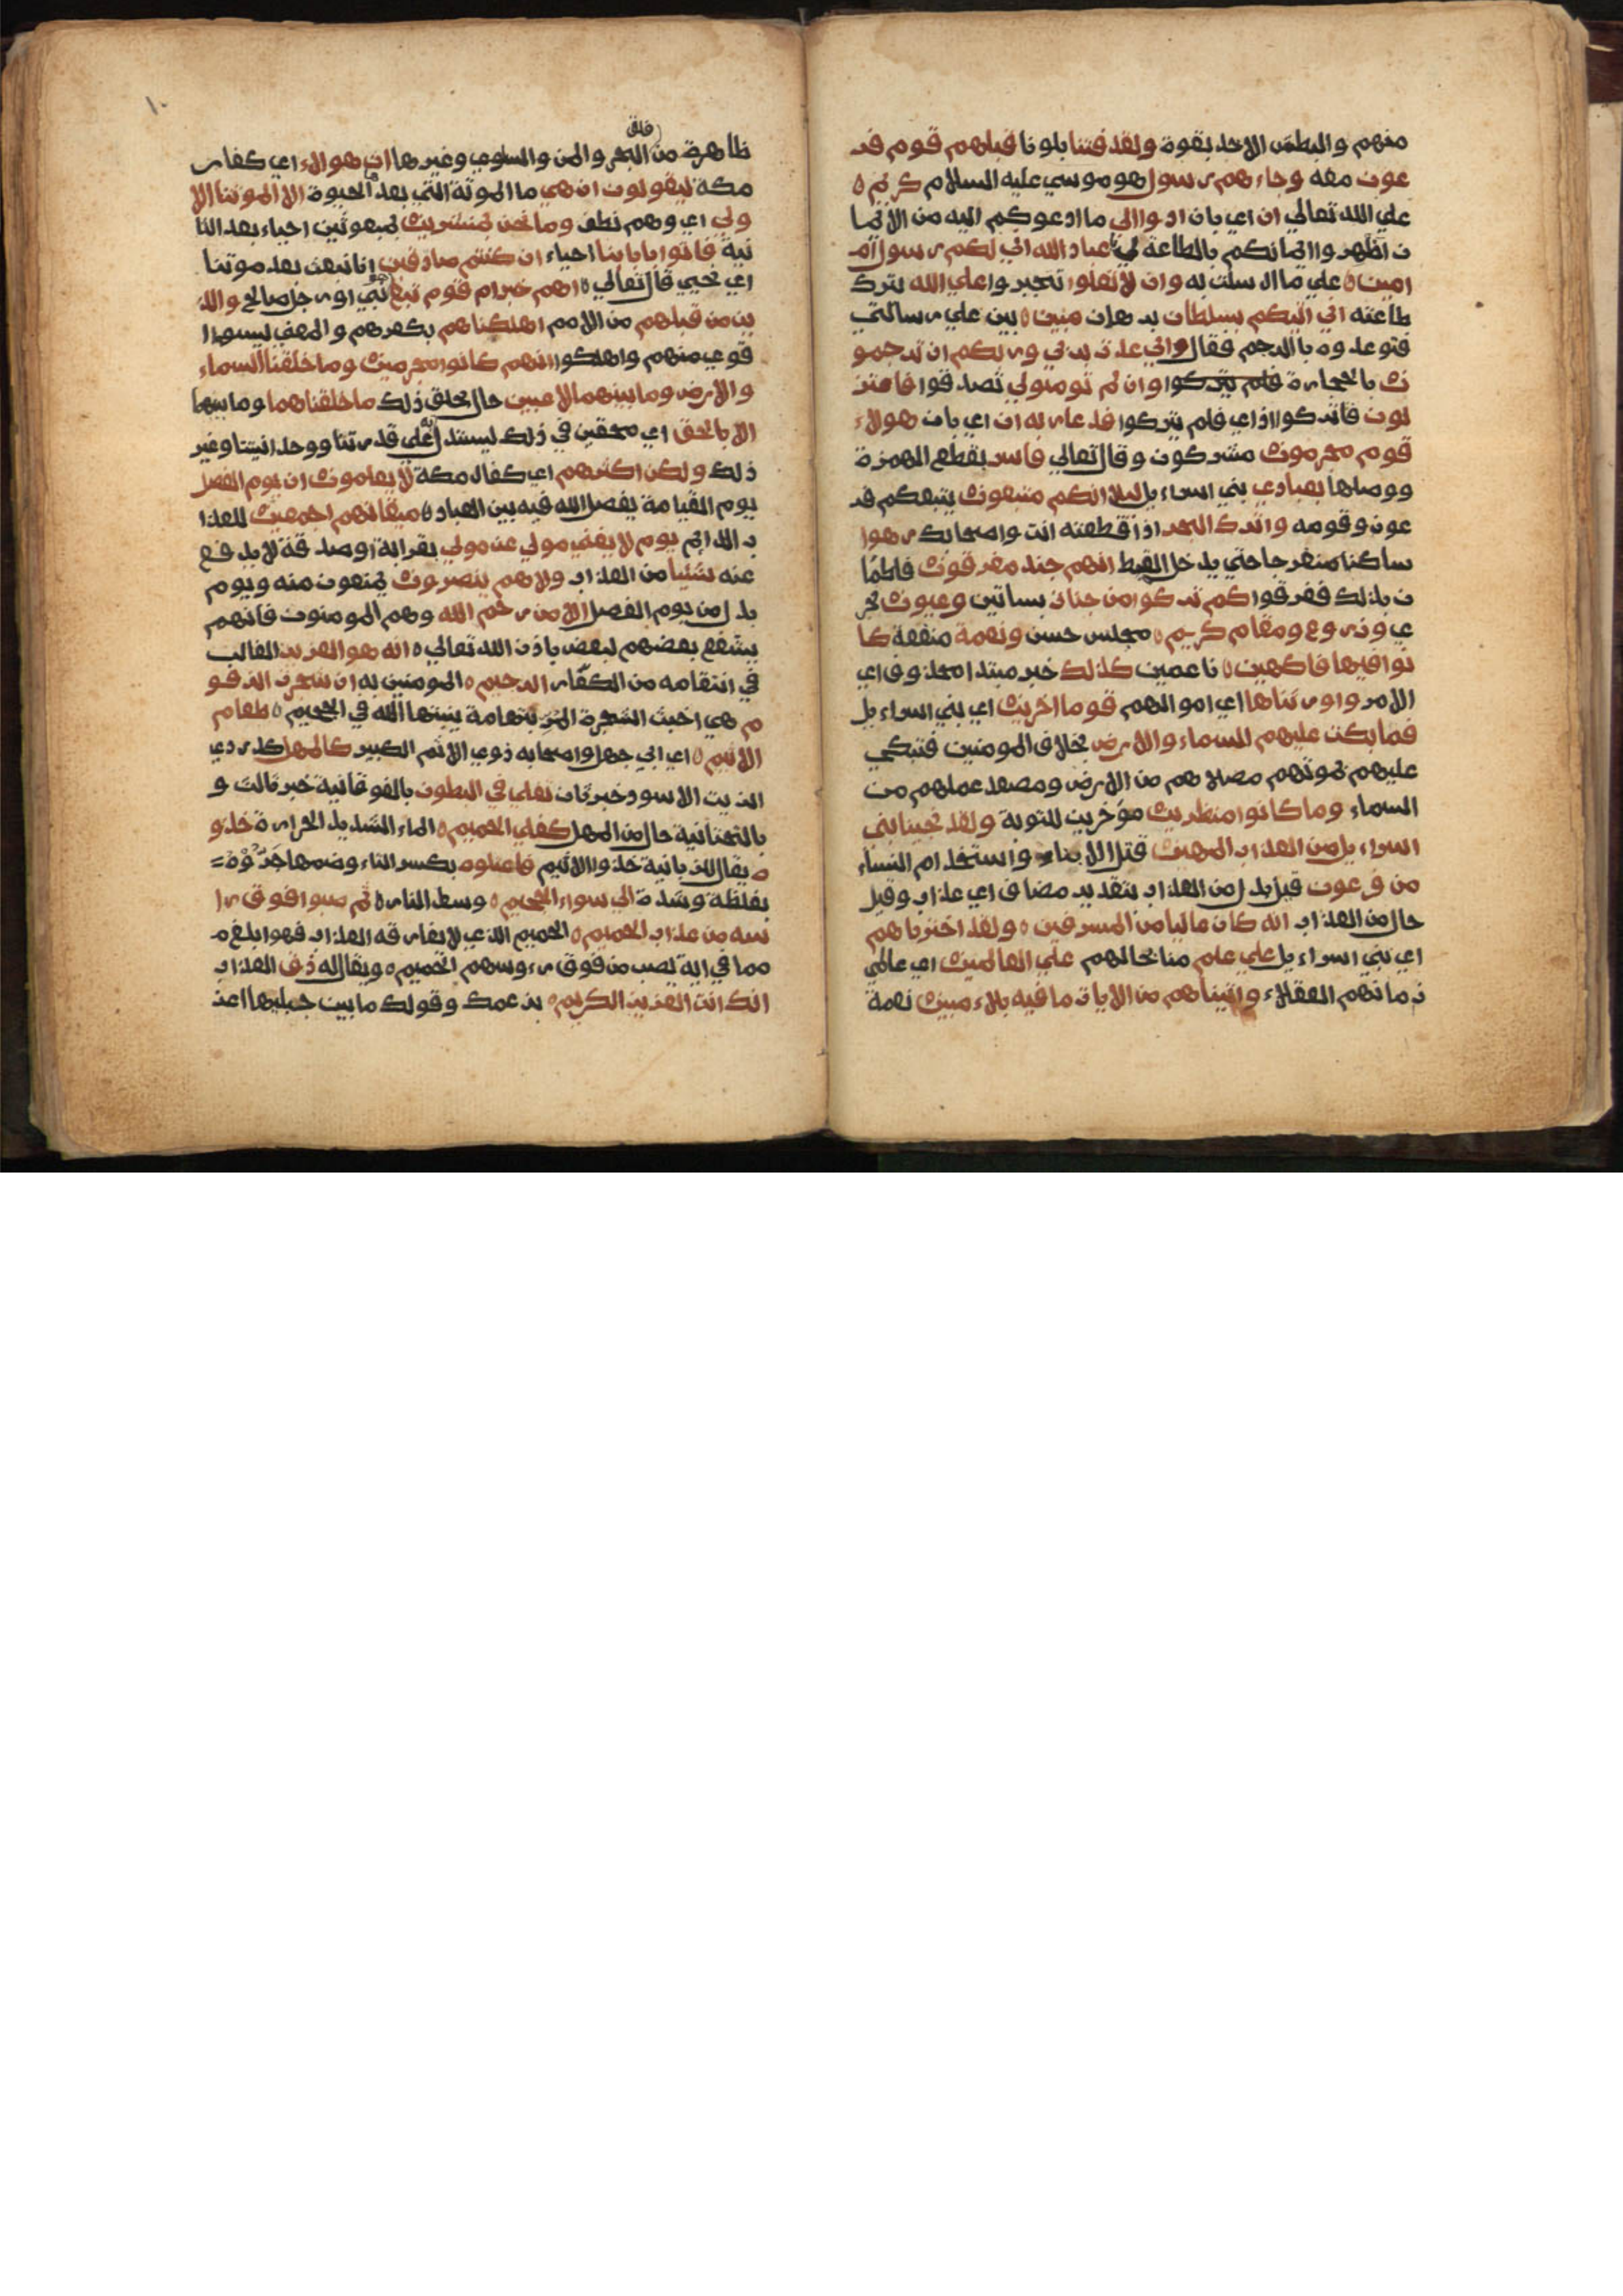 منهم والبطش الاخذ بقوة ولقد فتنا بلونا قبلهم قوم فر
عون معه وجاءهم رسول هو موسي عليه السلام كريم ه
علي الله تعالي ان اي بان ادوا الي ما ادعوكم اليه من الايما
ن اظهروا ايمانكم بالطاعة لي يا عباد الله اني لكم رسول ام
امين ه علي ما ارسلت به وان لا تعلوا تتجبروا علي الله بترك
طاعته اني اتيكم بسلطان برهان مبين ه بين علي رسالتي
فتوعدوه باالرجم فقال واني عذت بربي وربكم ان ترجمو
ن بالحجارة فلم يتركوا وان لم تومنولي تصدقوا فاعتز
لون فاتركوا اذاي فلم يتركوا فدعا ربه ان اي بان هولاء
قوم مجرمون مشركون وقال تعالي فاسر بقطع الهمزة
ووصلها بعبادي بني اسراءيل ليلا انكم متبعون يتبعكم فر
عون وقومه واترك البحر اذا قطعته انت واصحابك رهوا
ساكنا منفرجا حتي يدخل القبط انهم جند مغرقون فاطما
ن بذلك فغرقوا كم تركوا من جنان بساتين وعيون تجر
ي وزروع ومقام كريم ه مجلس حسن ونعمة متعة كا
نوا فيها فاكهين ه ناعمين كذلك خبر مبتدا محذوف اي
الامر واورثناها اي اموالهم قوما اخرين اي بني اسراءيل
فما بكت عليهم السماء والارض بخلاف المومنين فتبكي
عليهم بموتهم مصلاهم من الارض ومصعد عملهم من
السماء وما كانوا منظرين مؤخرين للتوبة ولقد نجينا بني
اسراءيل من العذاب المهين قتل الابناء واستخدام النساء
من فرعون قيل بدل من العذاب بتقدير مضاف اي عذاب وقيل
حال من العذاب انه كان عاليا من المسرفين ه ولقد اخترناهم
اي بني اسراءيل علي علم منا بحالهم علي العالمين اي عالمي
زمانهم العقلاء واتيناهم من الايات ما فيه بلاء مبين نعمة
١٠
فلق
ظاهرة من البحر والمن والسلوي وغيرها ان هوالاء اي كفار
مكة ليقولون ان هي ما الموتة التي بعدها الحيوة الا الموتتنا الا
ولي اي وهم نطف وما نحن بمنشرين بمبعوثين احياء بعد الثا
نية فاتوا باباينا احياء ان كنتم صادقين انا نبعث بعد موتنا
اي نحيي قال تعالي ه اهم خير ام قوم تبع نبي او رجل صالح والذ
ين من قبلهم من الامم اهلكناهم بكفرهم والمعني ليسوا ا
قوي منهم واهلكوا انهم كانوا مجرمين وما خلقنا السماء
والارض وما بينهما لاعبين حال بخلق ذلك ما خلقناهما وما بينهما
الا بالحق اي محقين في ذلك ليستدل علي قدرتنا ووحدانيتنا وغير
ذلك ولكن اكثرهم اي كفال مكة لا يعلمون ان يوم الفصل
يوم القيامة يفصل الله فيه بين العباد ه ميقاتهم اجمعين للعذا
ب الدايم يوم لا يغني مولي عن مولي بقرابة او صدقة لا يدفع
عنه شئيا من العذاب ولا هم ينصرون يمنعون منه ويوم
بدل من يوم الفصل الا من رحم الله وهم المومنون فانهم
يشفع بعضهم لبعض باذن الله تعالي ه انه هو العزيز الغالب
في انتقامه من الكفار الرحيم ه المومنين به ان شجرت الزقو
م هي اخبث الشجرة المر بتهامة ينبتها الله في الجحيم ه طعام
الاثيم ه اي ابي جهل واصحابه ذوي الاثم الكبير كالمهل كدردي
الزيت الاسود خبر ثان تغلي في البطون بالفوقانية خبر ثالث و
بالتحتانية حال من المهل كغلي الحميم ه الماء الشديد الحرارة خذو
ه يقال للزبانية خذوا الاثيم فاعتلوه بكسر التاء وضمها جروه =
بغلظة وشدة الي سواء الجحيم ه وسط النار ه ثم صبوا فوق را
سه من عذاب الحميم ه الحميم الذي لا يفارقه العذاب فهوا بلغ م
مما في اية يصب من فوق رءوسهم الحميم ه ويقال له ذق العذاب
انك انت العزيز الكريم ه بزعمك وقولك ما بين جبليها اعز